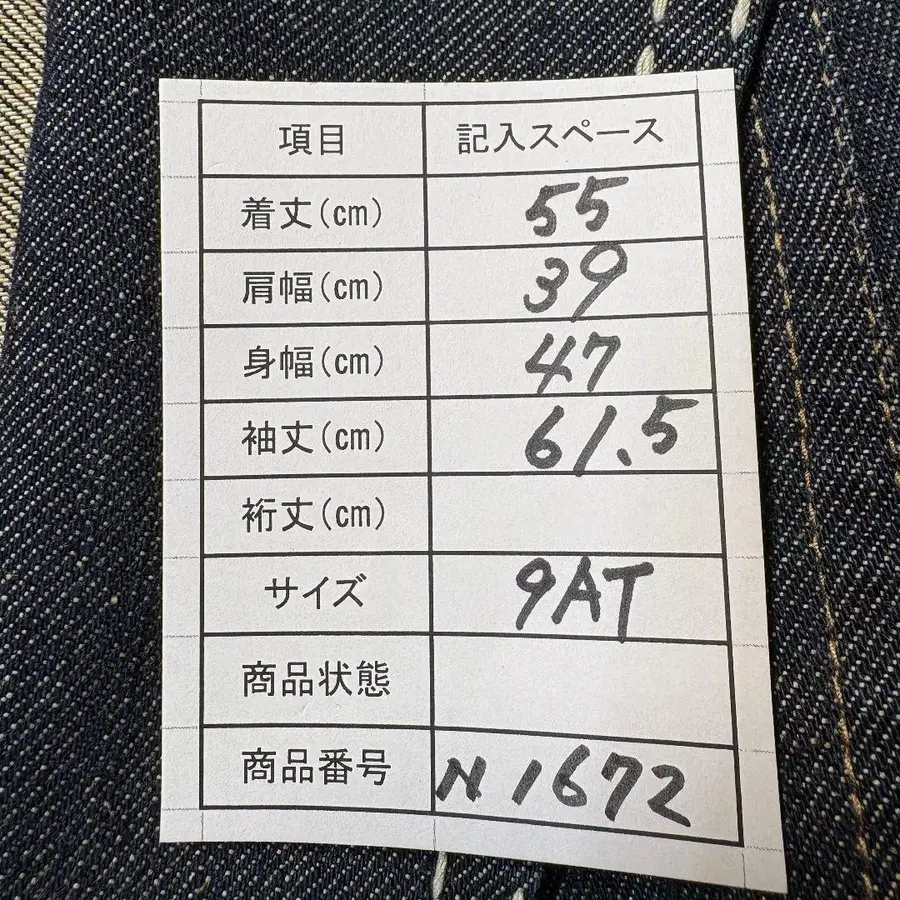 項目 記入スペース
着丈(cm) 55
肩幅(cm) 39
身幅(cm) 47
袖丈(cm) 61.5
裄丈(cm)
サイズ 9AT
商品状態
商品番号 N1672